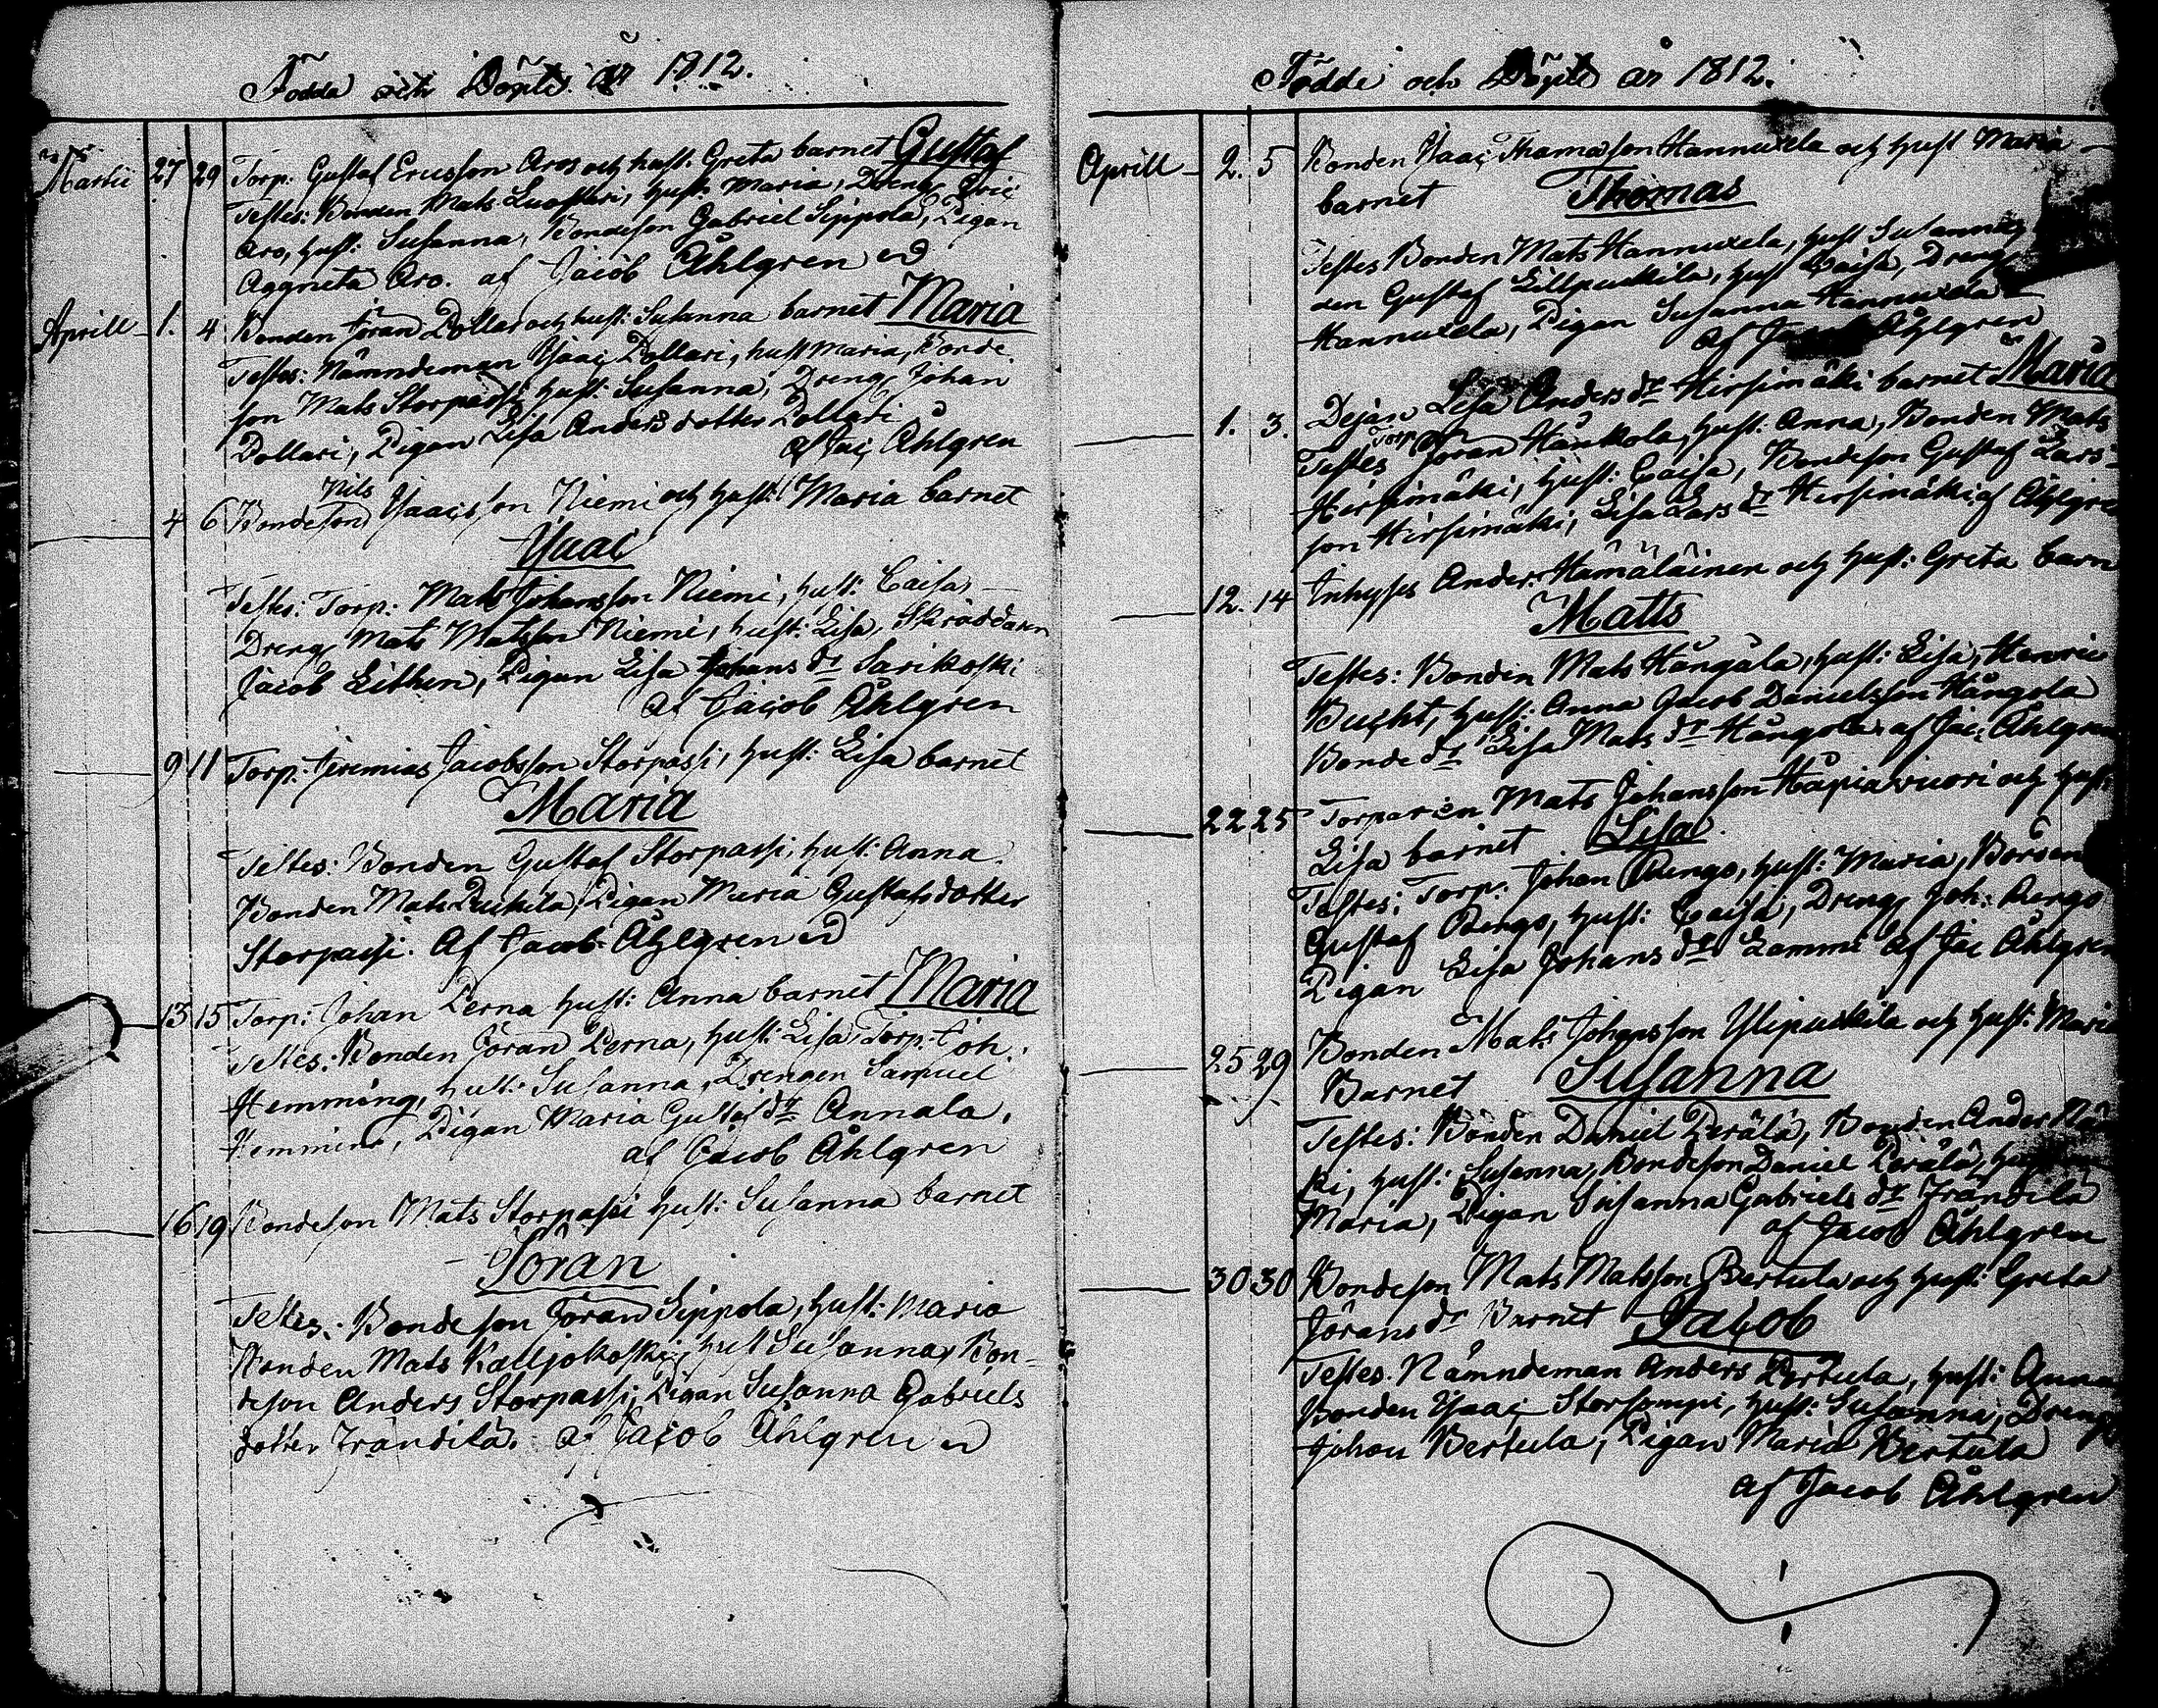 Födda och Döpte år 1812.
Martii 27 29 Torp: Gustaf Ericsson Aro och hust. Greta barnet Gustaf
Testes: Bonden Mats Luostari, hust. Maria, Dreng Eric
Aro, hust: Susanna, Bondeson Gabriel Sippola, Pigan
Aggneta Aro. af Jacob Åhlgren
Aprill 1. 4 Bonden Jöran Pollari och hust: Susanna barnet Maria
Testes: Nämndeman Isaac Pollari, hust Maria, Bonde
son Mats Storpassi hust: Susanna, Dreng Johan
Pollari, Pigan Lisa Andersdotter Pollari
af Jac Åhlgren
4 6 Bondeson Nils Isaacsson Niemi och hust: Maria barnet
Isaac
Testes: Torp: Mats Johansson Niemi, hust: Caisa,
Dreng Mats Matsson Niemi, hust: Lisa, Skräddaren
Jacob Lithen, Pigan Lisa Johans dr Sarikoski
af Jacob Åhlgren
9 11 Torp: Jeremias Jacobsson Storpassi, hust: Lisa barnet
Maria
Testes: Bonden Gustaf Storpassi, hust: Anna
Bonden Mats Puckila, Pigan Maria Gustafsdotter
Storpassi. Af Jacob Åhlgren
13 15 Torp: Johan Perna hust: Anna barnet Maria
Testes: Bonden Jöran Perna, hust: Lisa, Torp: Joh:
Hemming, hust: Susanna, Drengen Samuel
Hemming, Pigan Maria Gustaf dr Annala,
af Jacob Åhlgren
16 19 Bondeson Mats Storpassi hust: Susanna barnet
Jöran
Testes: Bondeson Jöran Sippola, hust: Maria
Bonden Mats Kalljokoski, hust Susanna, Bon-
deson Anders Storpassi, Pigan Susanna Gabriels
dotter Trändilä. af Jacob Åhlgren
Födde och Döpte år 1812.
Aprill 2. 5 Bonden Isaac Thomasson Hannuxela och hust Maria
barnet Thomas
Testes Bonden Mats Hannuxela, hust Susanna,
den Gustaf Lillpuckila, hust Caisa, Dreng
Hannuxela, Pigan Susanna Hannuxela
af Jacob Åhlgren
1. 3. Pejan Lisa Anders dr Hirsimäki barnet Maria
Testes Torp Jöran Hankola, hust: Anna, Bonden Mats
Hirsimäki, hust: Caisa, Bondeson Gustaf Lars-
son Hirsimäki, Lisa Lars dr Hirsimäki af Åhlgre
12. 14 Inhyses Anders Hämäläinen och hust: Greta barn
Matts
Testes: Bonden Mats Hångåla, hust: Lisa, Henric
Bucht, hust: Anna Jacob Danielsson Hångola
Bonde dr Lisa Mats dr Hångola af Jac: Åhlgren
22 25 Torparen Mats Johansson Håpiavuori och hust:
Lisa barnet Lisa
Testes: Torp. Johan Rengo, hust: Maria,
Gustaf Rengo, hust: Caisa, Dreng Joh: Rengo
Pigan Lisa Johans dr Lammi af Jac Åhlgren
25 29 Bonden Mats Johansson Ylipuckila och hust: Maria
Barnet Susanna
Testes: Bonden Daniel Perälä, Bonden Anders
ki, hust: Susanna, Bondeson Daniel Perälä,
Maria, Pigan Susanna Gabriels dr Trändilä
af Jacob Åhlgren
30 30 Bondeson Mats Matsson Bertula och hust: Greta
Jörans dr Barnet Jacob
Testes. Nämndeman Anders Pertula, hust: Anna
Bonden Isaac Storsompi, hust: Susanna, Dreng
Johan Bertula, Pigan Maria Bertula
af Jacob Åhlgren